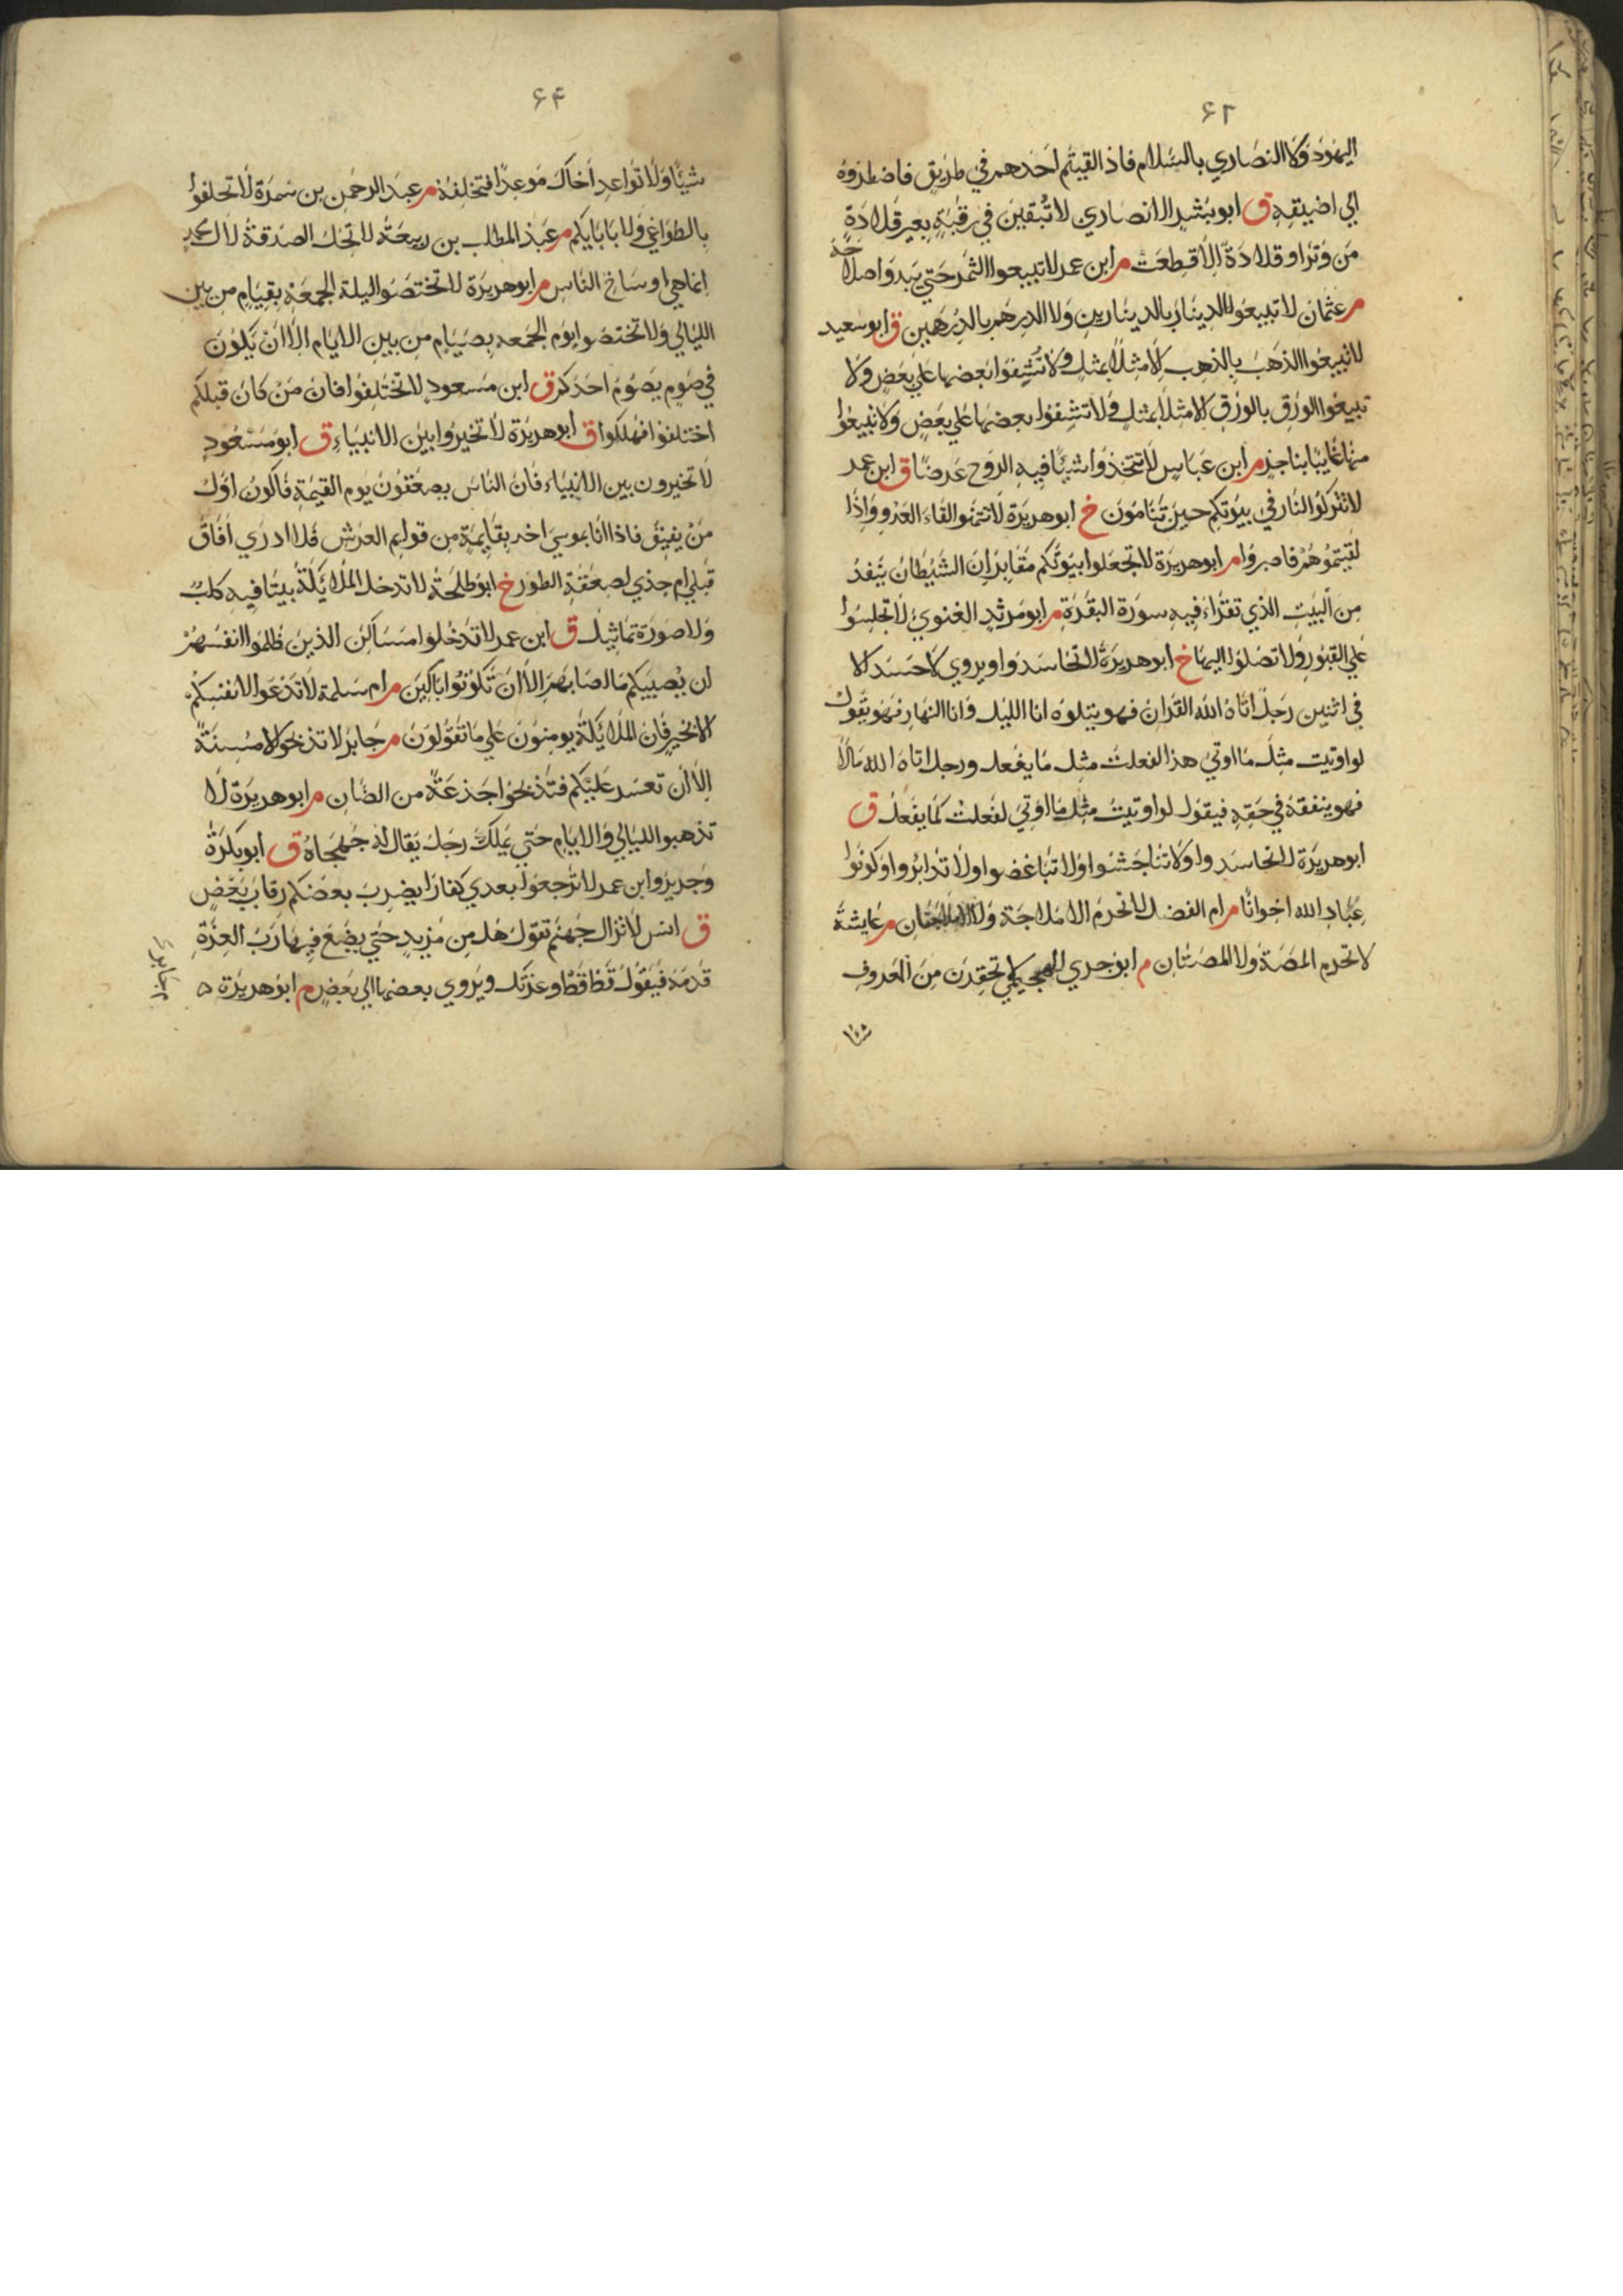 ۶۲
اليهود ولا النصاري بالسلام فاذ القيتم احدهم في طريق فاضطروه
الي اضيقه ق ابو بشير الانصاري لا تبقين في رقبة بعير قلادة
من وتر او قلادة الا قطعت م ابن عمر لا تبيعوا الثمر حتي يبدو اصلاحه
م عثمان لا تبيعوا الدينار بالدينارين ولا الدرهم بالدرهمين ق ابو سعيد
لا تبيعوا الذهب بالذهب الا مثلا بمثل ولا تشفوا بعضها علي بعض ولا
تبيعوا الورق بالورق الا مثلا بمثل ولا تشفوا بعضها علي بعض ولا تبيعوا
منها غايبا بناجز م ابن عباس لا تتخذوا شيئا فيه الروح غرضا ق ابن عمر
لا تتركوا النار في بيوتكم حين تنامون خ ابو هريرة لا تتمنوا لقاء العدو واذا
لقيتموهم فاصبروا م ابو هريرة لا تجعلوا بيوتكم مقابر ان الشيطان ينفر
من البيت الذي تقراء فيه سورة البقرة م ابو مرثد الغنوي لا تجلسوا
علي القبور ولا تصلوا اليها خ ابو هريرة لا تحاسدوا ويروي لا حسد الا
في اثنين رجل اتاه الله القران فهو يتلوه انا الليل وانا النهار فهو يقول
لو اوتيت مثل ما اوتي هذا لفعلت مثل ما يفعل ورجل اتاه الله مالا
فهو ينفقه في حقه فيقول لو اوتيت مثل ما اوتي لفعلت كما يفعل ق
ابو هريرة لا تحاسدوا ولا تناجشوا ولا تباغضوا ولا تدابروا وكونوا
عباد الله اخوانا م ام الفضل لا تحرم الاملاجة ولا الاملاجتان م عايشة
لا تحرم المصة ولا المصتان م ابو جري الهجيمي لا تحقرن من المعروف
شيئا
۶۴
شيئا ولا تواعد اخاك موعدا فتخلفه م عبد الرحمن بن سمرة لا تحلفوا
بالطواغي ولا بابايكم م عبد المطلب بن ربيعة لا تحل الصدقة لال محمد
انما هي اوساخ الناس م ابو هريرة لا تختصوا ليلة الجمعة بقيام من بين
الليالي ولا تختصوا يوم الجمعه بصيام من بين الايام الا ان يكون
في صوم يصوم احدكم ق ابن مسعود لا تختلفوا فان من كان قبلكم
اختلفوا فهلكوا ق ابو هريرة لا تخيروا بين الانبياء ق ابو مسعود
لا تخيرون بين الانبياء فان الناس يصعقون يوم القيمة فاكون اول
من يفيق فاذا انا بموسي اخذ بقايمة من قوايم العرش فلا ادري افاق
قبلي ام جزي لصعقة الطور خ ابو طلحة لا تدخل الملايكة بيتا فيه كلب
ولا صورة تماثيل ق ابن عمر لا تدخلوا مساكن الذين ظلموا انفسهم
ان يصيبكم ما اصابهم الا ان تكونوا باكين م ام سلمة لا تدعوا لانفسكم
الا بخير فان الملايكة يومنون علي ما تقولون م جابر لا تذبحوا الا مسنة
الا ان تعسر عليكم فتذبحوا جذعة من الضان م ابو هريرة لا
تذهبوا الليالي والايام حتي يملك رجل يقال له جهجاه ق ابو بكرة
وجرير وابن عمر لا ترجعوا بعدي كفارا يضرب بعضكم رقاب بعض
ق انس لا تزال جهنم تقول هل من مزيد حتي يضع فيها رب العزة
قدمه فيقول قط قط وعزتك ويروي بعضها الي بعض م ابو هريرة